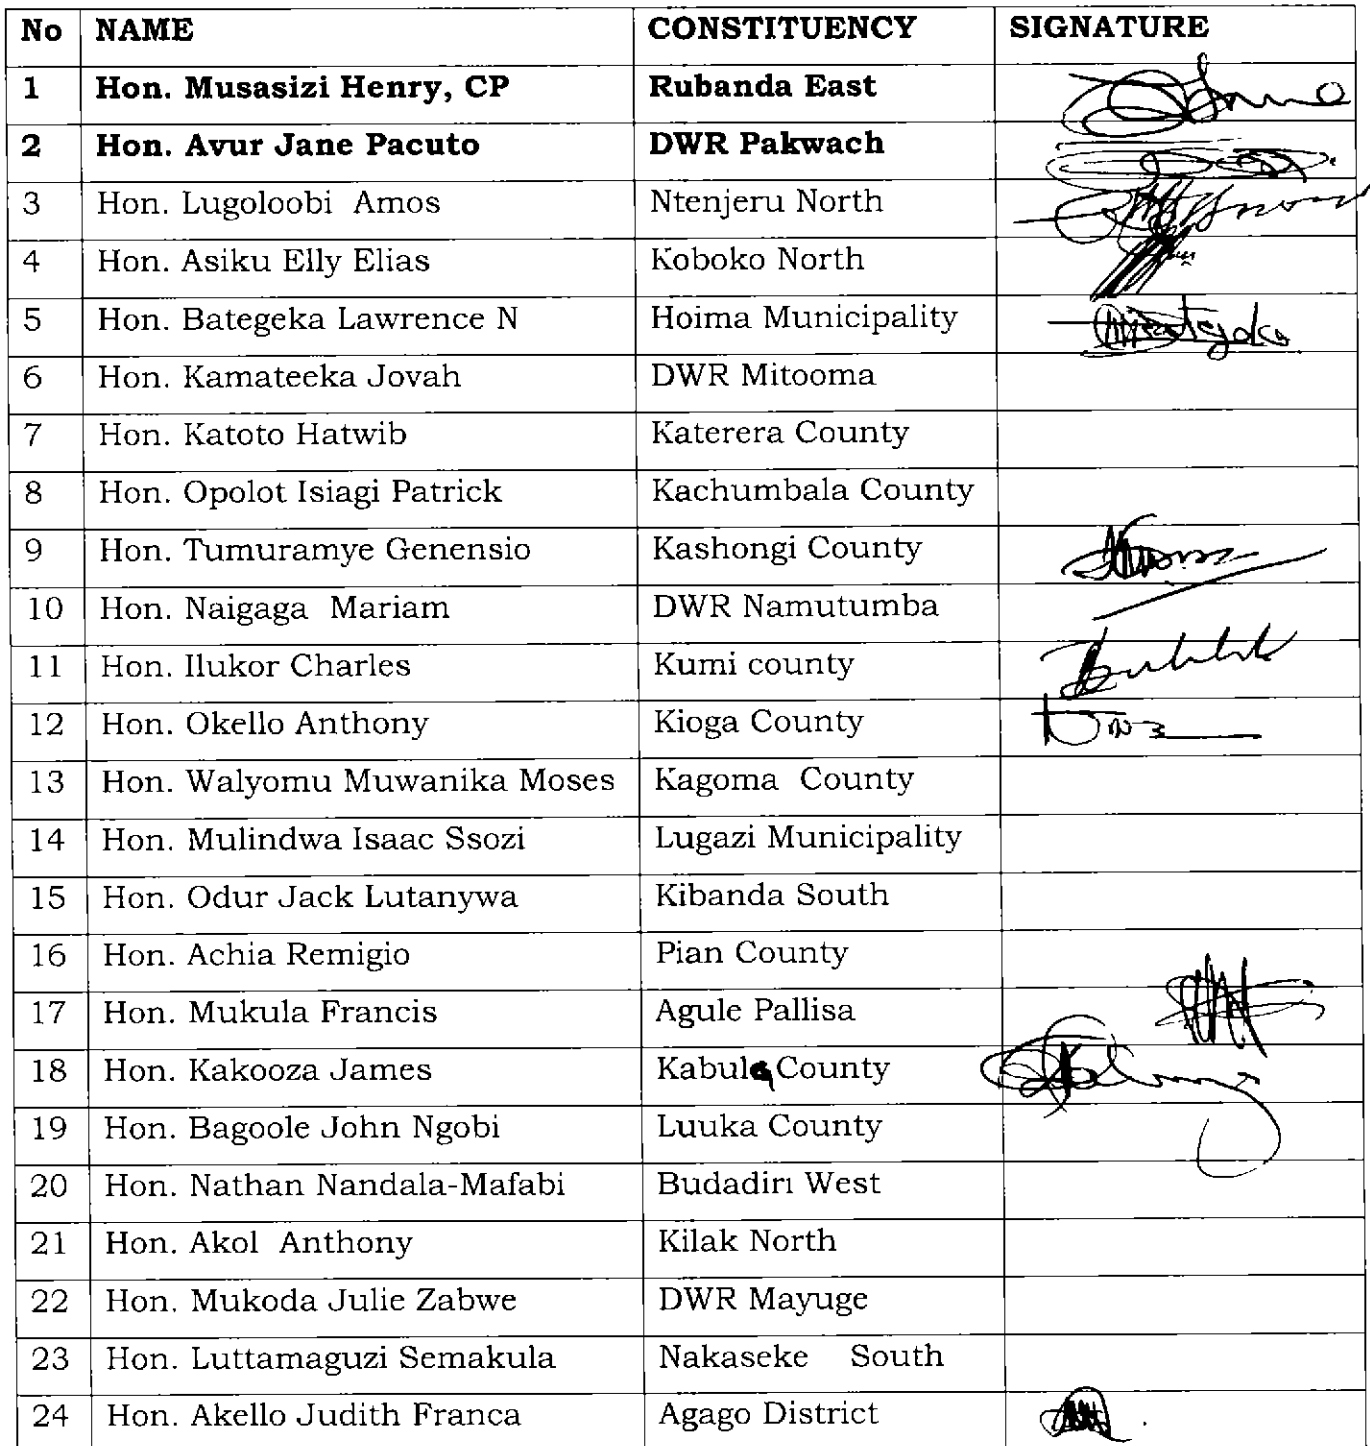 No NAME CONSTITUENCY SIGNATURE
1 Hon. Musasizi Henry, CP Rubanda East
2 Hon. Avur Jane Pacuto DWR Pakwach
3 Hon. Lugoloobi Amos Ntenjeru North
4 Hon. Asiku Elly Elias Koboko North
5 Hon. Bategeka Lawrence N Hoima Municipality
6 Hon. Kamateeka Jovah DWR Mitooma
7 Hon. Katoto Hatwib Katerera County
8 Hon. Opolot Isiagi Patrick Kachumbala County
9 Hon. Tumuramye Genensio Kashongi County
10 Hon. Naigaga Mariam DWR Namutumba
11 Hon. Ilukor Charles Kumi county
12 Hon. Okello Anthony Kioga County
13 Hon. Walyomu Muwanika Moses Kagoma County
14 Hon. Mulindwa Isaac Ssozi Lugazi Municipality
15 Hon. Odur Jack Lutanywa Kibanda South
16 Hon. Achia Remigio Pian County
17 Hon. Mukula Francis Agule Pallisa
18 Hon. Kakooza James Kabula County
19 Hon. Bagoole John Ngobi Luuka County
20 Hon. Nathan Nandala-Mafabi Budadiri West
21 Hon. Akol Anthony Kilak North
22 Hon. Mukoda Julie Zabwe DWR Mayuge
23 Hon. Luttamaguzi Semakula Nakaseke South
24 Hon. Akello Judith Franca Agago District